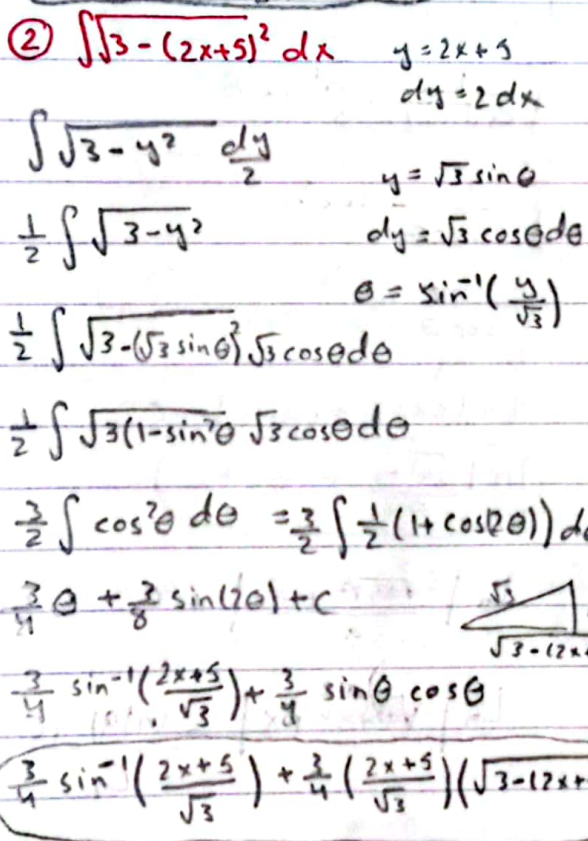 ② ∫√3-(2x+5)² dx   y = 2x+5
dy = 2 dx
∫ √3-y² dy/2
y = √3 sinθ
1/2 ∫ √3-y²   dy = √3 cosθdθ
θ = sin⁻¹(y/√3)
1/2 ∫ √3-(√3 sinθ)² √3 cosθdθ
1/2 ∫ √3(1-sin²θ √3 cosθdθ
3/2 ∫ cos²θ dθ = 3/2 ∫ 1/2 (1+cos(2θ)) d
3/4 θ + 3/8 sin(2θ)+C   √3
√3-(2x
3/4 sin⁻¹(2x+5/√3)+ 3/4 sinθ cosθ
3/4 sin⁻¹(2x+5/√3) + 3/4 (2x+5/√3)(√3-(2x+